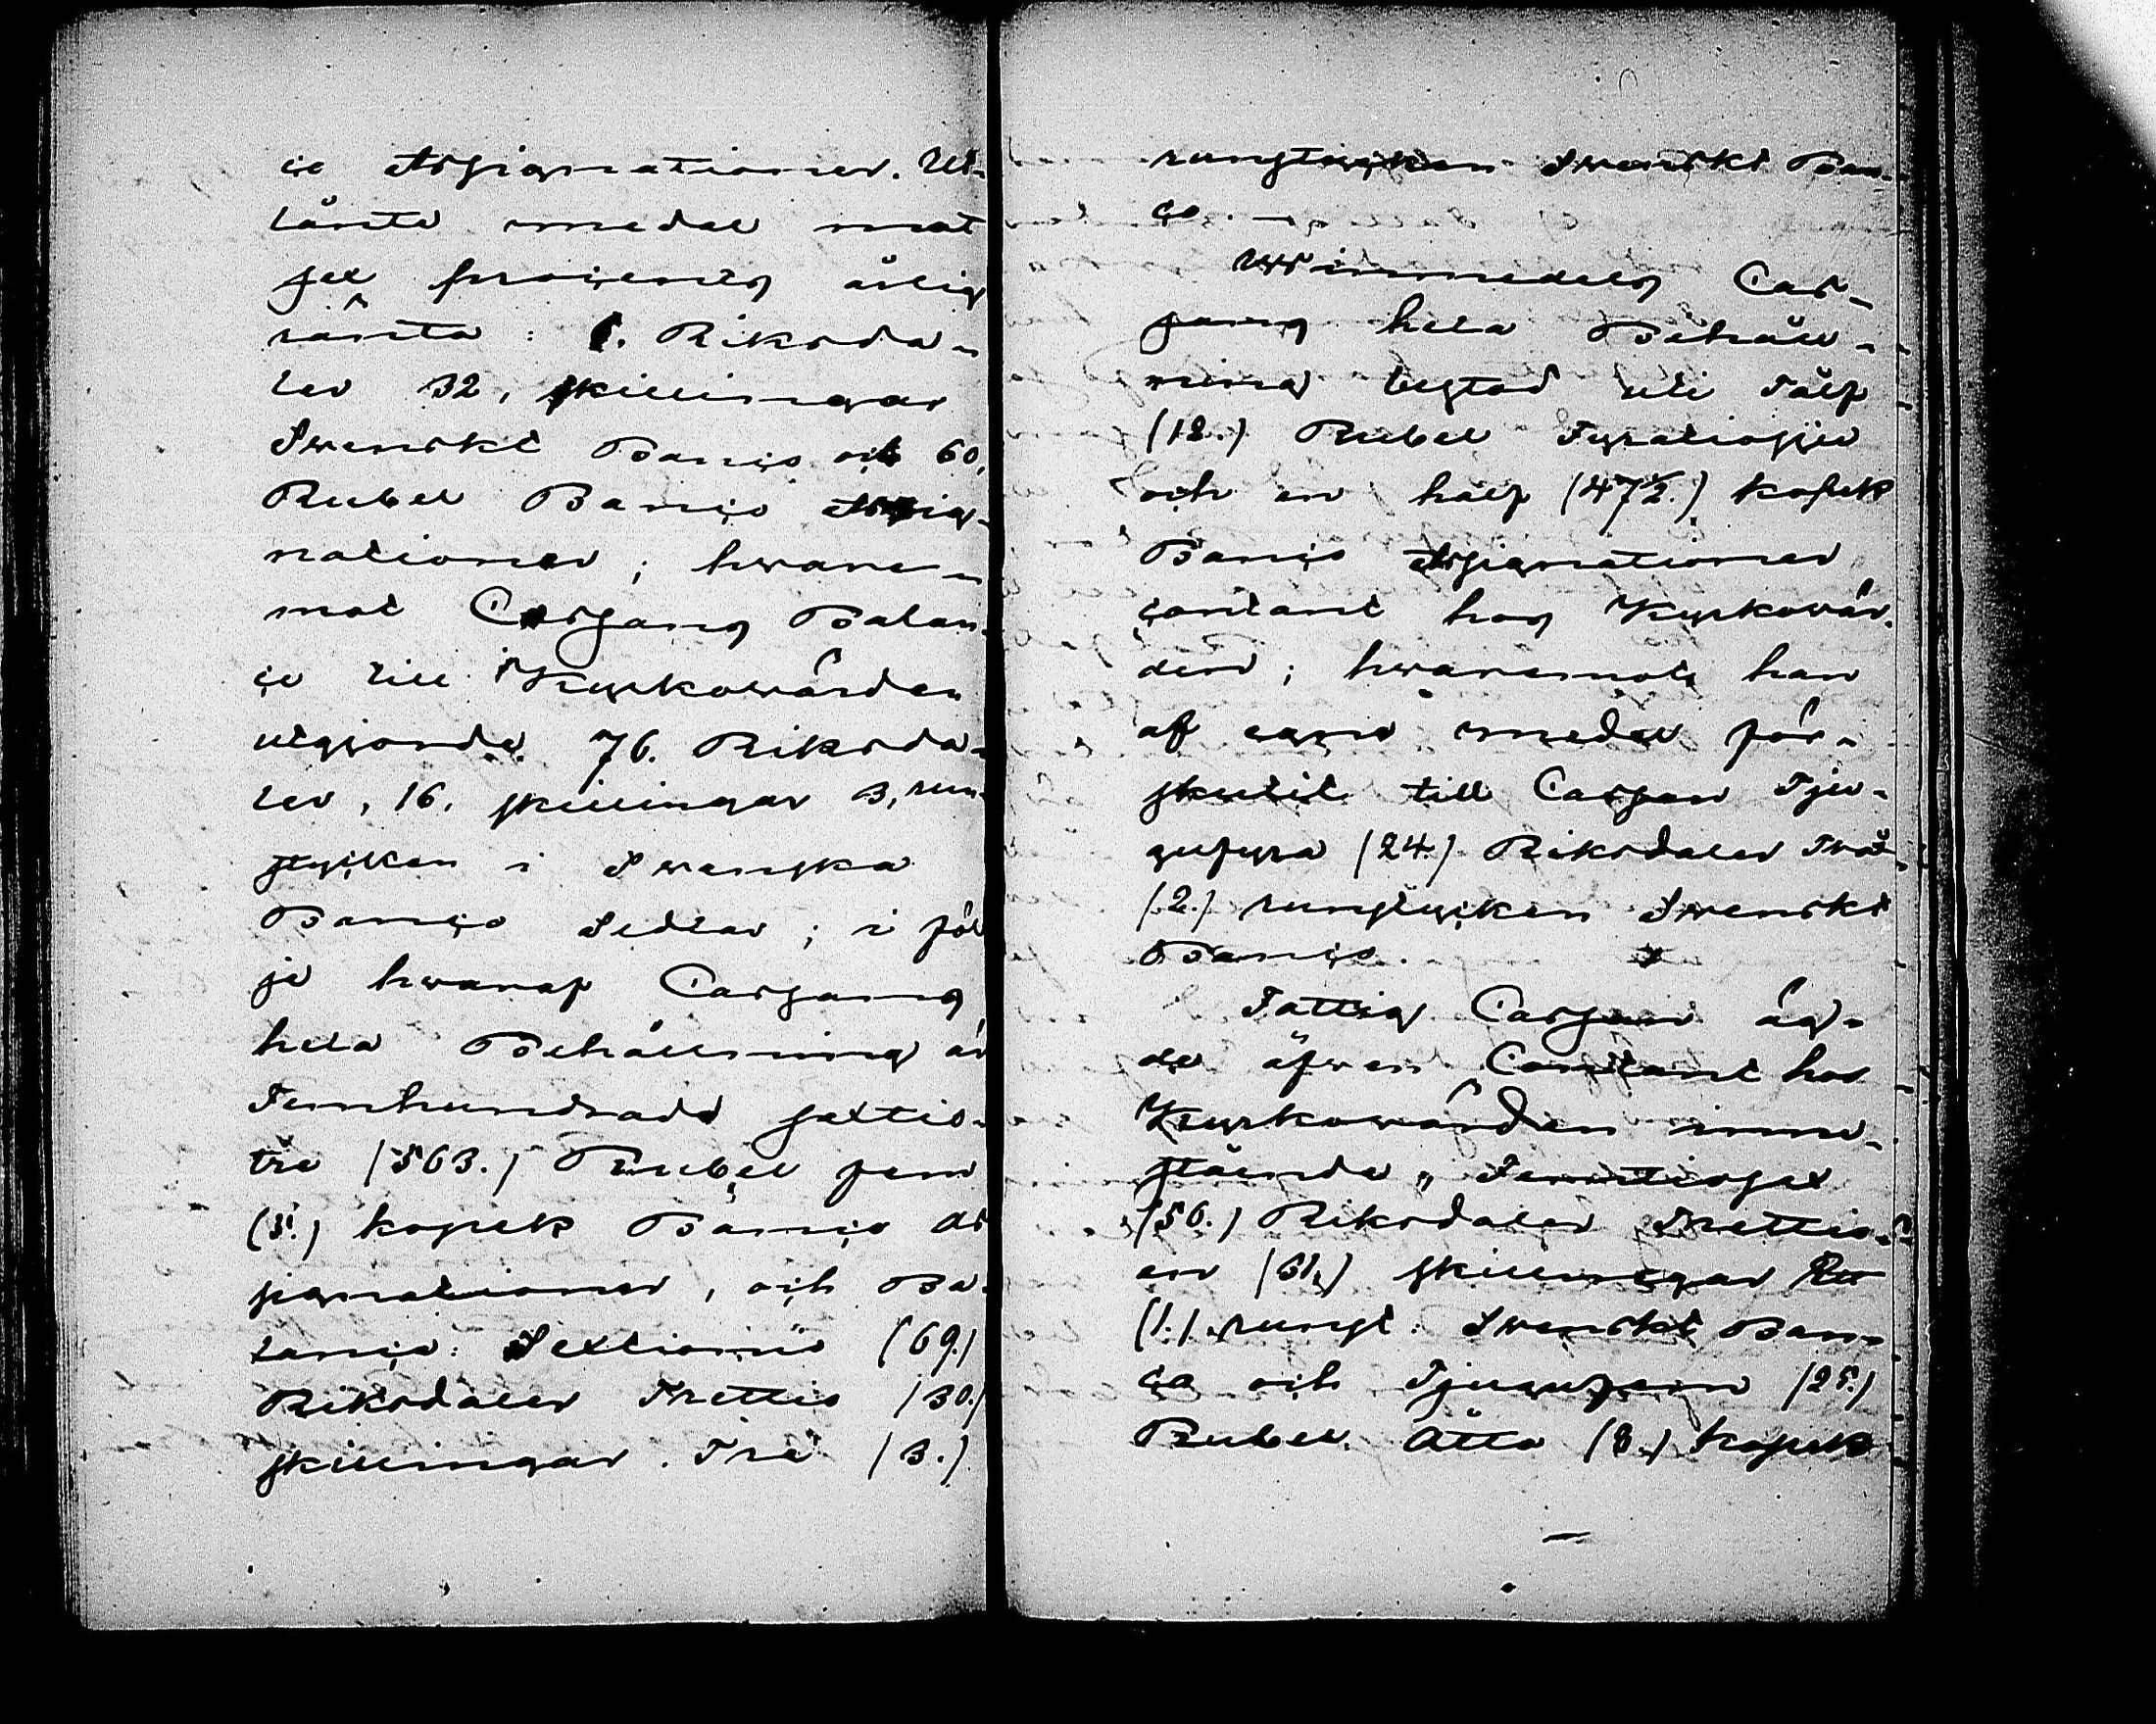 ce Assignationer. Ut-
lånte medel mot
sex procents årlig
ränta: 1. Riksda-
ler 32, skillingar
Swenskt Banco och 60,
Rubel Banco Assig-
nationer; hware-
mot Cassans Balan-
ce till Kyrkowärden
utgjorde 76. Riksda-
ler, 16. skillingar 3, run-
stycken i Swenska
Banco Sedlar; i föl
je hwaraf Cassans
hela Behållning är
Femhundrade sextio-
tre (563.) Rubel fem
(5.) kopek Banco As
signationer, och Ba-
lance: Sextionio (69.)
Riksdaler Trettio (30.)
skillingar. Tre (3.)
runstycken Swenskt Ban-
co.
Winmedels Cas-
sans hela Behåll-
ning bestod uti Tolf
(12.) Rubel Fyratiosju
och en half (47½.) kopek
Banco Assignationer
contant hos Kyrkowär-
den; hwaremot han
af egne medel för-
skutit till Cassan Tju-
gufyra (24.) Riksdaler Två
(2.) runstycken Swenskt
Banco.
Fattig Cassan äg-
de äfwen Contant hos
Kyrkowärden inne-
stående, Femtiosex
(56.) Riksdaler Trettio-
en (31.) skillingar
(1.) runst. Swenskt Ban-
co och Tjugufem (25.)
Rubel Åtta (8.) kopek